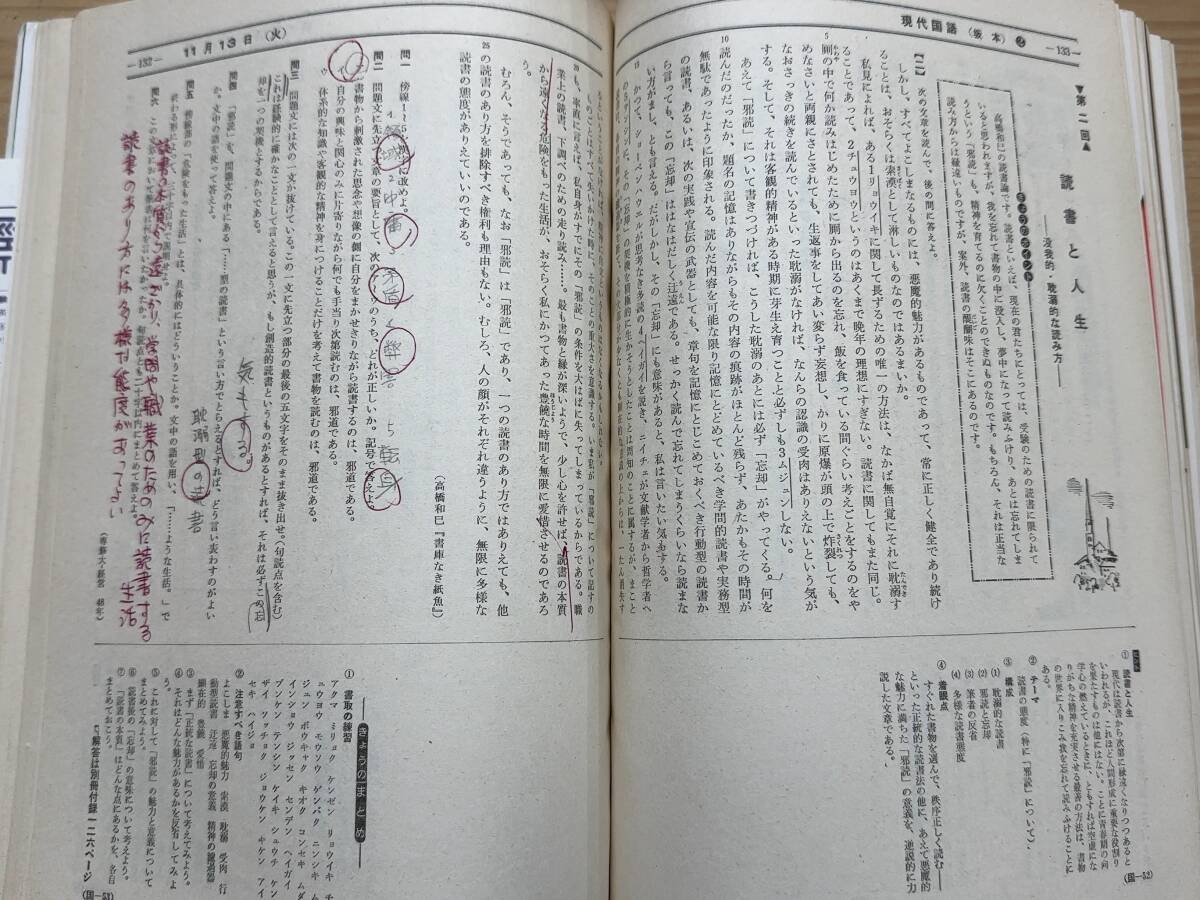 現代国語（坂本）②
―133―
▼第二回▲
読書と人生
――没我的・耽溺的な読み方――
きょうのポイント
高橋和巳の読書論です。読書といえば、現在の君たちにとっては、受験のための読書に限られて
いると思われますが、我を忘れて書物の中に没入し、夢中になって読みふけり、あとは忘れてしま
うという「邪読」も、精神を育てるのに欠くことのできぬものなのです。もちろん、それは正当な
読み方からは縁遠いものですが、案外、読書の醍醐味はそこにあるのです。
【二】 次の文章を読んで、後の問に答えよ。
しかし、すべてよこしまなるものには、悪魔的魅力があるものであって、常に正しく健全であり続け
ることは、おそらくは索漠として淋しいものなのではあるまいか。
私見によれば、ある1リョウイキに関して長ずるための唯一の方法は、なかば無自覚にそれに耽溺す
ることであって、2チュウヨウというのはあくまで晩年の理想にすぎない。読書に関してもまた同じ。
5 厠の中で何か読みはじめたために厠から出るのを忘れ、飯を食っている間ぐらい考えごとをするのをや
めなさいと両親にさとされても、生返事をしてあい変らず妄想し、かりに原爆が頭の上で炸裂しても、
なおさっきの続きを読んでいるといった耽溺がなければ、なんらの認識の受肉はありえないという気が
する。そして、それは客観的精神がある時期に芽生え育つことと必ずしも3ムジュンしない。
あえて「邪読」について書きつづければ、こうした耽溺のあとには必ず「忘却」がやってくる。何を
10 読んだのだったか、題名の記憶はありながらもその内容の痕跡がほとんど残らず、あたかもその時間が
無駄であったように印象される。読んだ内容を可能な限り記憶にとどめているべき学問的読書や実務型
の読書、あるいは、次の実践や宣伝の武器としても、章句を記憶にとじこめておくべき行動型の読書か
ら言っても、この「忘却」ははなはだしく迂遠である。せっかく読んで忘れてしまうくらいなら読まな
い方がまし、とも言える。だがしかし、その「忘却」にも意味があると、私は言いたい気もする。
15 かつて、ショーペンハウエルが思考なき多読の4ヘイガイを説き、ニイチェが文献学者から哲学者へ
ヒント
① 読書と人生
現代は読書から次第に縁遠くなりつつあると
いわれるが、これほど人間形成に重要な役割り
を果たすものは他にはない。ことに青春期の向
学心の燃えているときに、ともすれば空虚にな
りがちな精神を充実させる最善の方法は、書物
の世界に入りこみ我を忘れて読みふけることに
ある。
② テーマ
読書の態度（特に「邪読」について）。
③ 構成
(1) 耽溺的な読書
(2) 邪読と忘却
(3) 筆者の反省
(4) 多様な読書態度
④ 着眼点
すぐれた書物を選んで、秩序正しく読む――
といった正統的な読書法の他に、あえて悪魔的
な魅力に満ちた「邪読」の意義を、逆説的に力
説した文章である。
（国―52）
11月13日（火）
―132―
も、率直に言えば、私自身がすでにその「邪読」の条件を大はばに失ってしまっているからである。職
業上の読書、下調べのための走り読み……。最も書物と縁が深いようで、少し心を許せば、読書の本質
から遠くなる危険をもった生活が、おそらく私にかつてあった豊饒な時間を無限に愛惜させるのであろ
う。
むろん、そうであっても、なお「邪読」は「邪読」であり、一つの読書のあり方ではありえても、他
25 の読書のあり方を排除すべき権利も理由もない。むしろ、人の顔がそれぞれ違うように、無限に多様な
読書の態度がありえていいのである。
（高橋和巳『書庫なき紙魚』）
問一 傍線1〜5を漢字に改めよ。
1 領域 2 中庸 3 矛盾 4 弊害 5 献身
問二 問題文に先立つ文章の要旨として、次のうち、どれが正しいか。記号で答えよ。
書物から刺激された思念や想像の側に自分をまかせきりながら読書するのは、邪道である。
自分の興味と関心のみに片寄りながら何でも手当り次第読むのは、邪道である。
体系的な知識や客観的な精神を身につけることだけを考えて書物を読むのは、邪道である。
問三 問題文には次の一文が抜けている。この一文に先立つ部分の最後の五文字をそのまま抜き出せ。（句読点を含む）
これは経験的に確かなこととして言えると思うが、もし創造的読書というものがあるとすれば、それは必ずこの忘
却を一つの契機とするからである。
気もする。
問四 「邪読」を、問題文の中にある「……型の読書」という言い方でとらえるとすれば、どう言い表わすのがよい
か。文中の語を使って答えよ。
耽溺型の読書
問五 傍線部の「危険をもった生活」とは、具体的にはどういうことか。文中の語を用い、「……ような生活。」で
読書の本質から遠ざかり、学問や職業のためのみに読書する
生活
読書のあり方には多様な態度があってよい
（専修大・経営 48年）
きょうのまとめ
① 書取の練習
アクマ ミリョク ケンゼン リョウイキ チ
ュウヨウ モウソウ ゲンバク ニンシキ ム
ジュン ボウキャク キオク コンセキ ムダ
インショウ ジッセン センデン ヘイガイ
ブンケン テンシン ケイキ シュウチ ケン
ザイ ソッチョク ジョウケン キケン アイ
セキ ハイジョ
② 注意すべき語句
よこしま 悪魔的魅力 索漠 耽溺 受肉 行
動型読書 迂遠 忘却の意義 精神の濾過器
顕在的 豊饒 愛惜
③ まず「正統な読書」について考えてみよう。
④ それはどんな魅力があるかを反省してみよ
う。
⑤ これに対して「邪読」の魅力と意義について
まとめてみよう。
⑥ 読書後の「忘却」の意味について考えよう。
⑦ 「読書の本質」はどんな点にあるかを、各自
まとめておこう。
〔解答は別冊付録一二六ページ〕
（国―53）